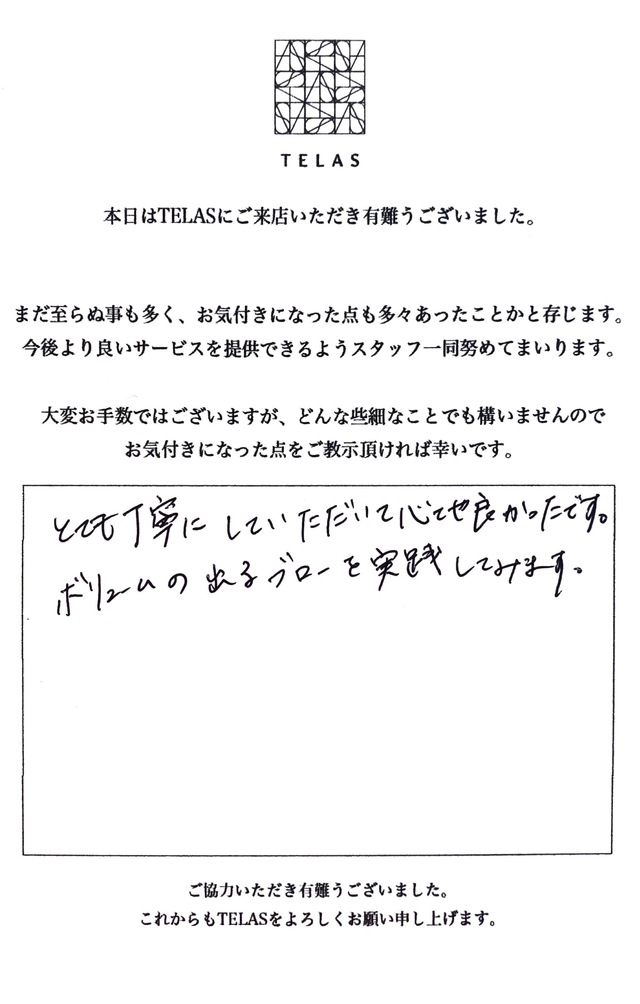 TELAS
本日はTELASにご来店いただき有難うございました。
まだ至らぬ事も多く、お気付きになった点も多々あったことかと存じます。
今後より良いサービスを提供できるようスタッフ一同努めてまいります。
大変お手数ではございますが、どんな些細なことでも構いませんので
お気付きになった点をご教示頂ければ幸いです。
とても丁寧にしていただいて心地良かったです。
ボリュームの出るブローを実践してみます。
ご協力いただき有難うございました。
これからもTELASをよろしくお願い申し上げます。